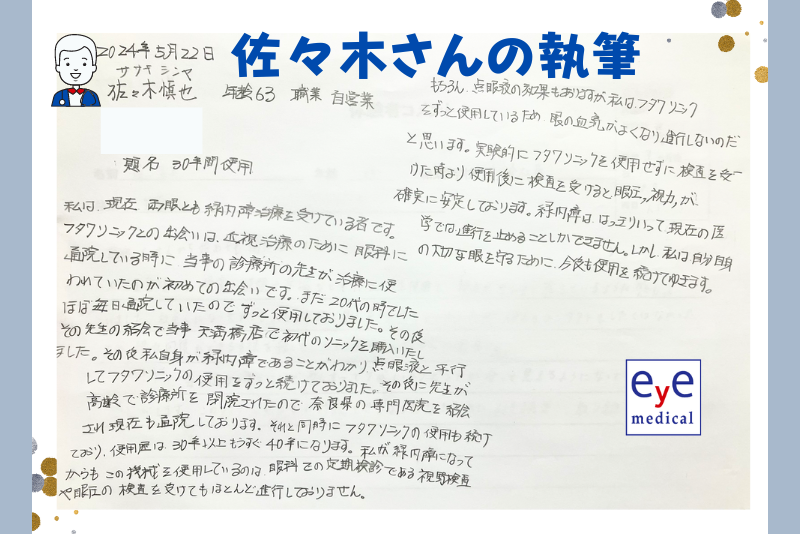 佐々木さんの執筆
2024年5月22日
ササキ シンヤ
佐々木慎也 年齢63 職業 自営業
題名 30年間使用
私は、現在 両眼とも緑内障治療を受けている者です。
フタワソニックとの出会いは、近視治療のために眼科に
通院している時に 当事の診療所の先生が治療に使
われていたのが初めての出会いです。まだ20代の時でした
ほぼ毎日通院していたので ずっと使用しておりました。その後
その先生の紹介で当事 天満橋店で初代のソニックを購入いたし
ました。その後私自身が緑内障であることがわかり 点眼液と平行
してフタワソニックの使用をずっと続けておりました。その後に先生が
高齢で診療所を閉院されたので 奈良県の専門医院を紹介
され現在も通院しております。それと同時にフタワソニックの使用も続け
ており、使用歴は30年以上もうすぐ40年になります。私が緑内障になって
からも この機械を使用しているのは 眼科での定期検診である視野検査
や眼圧の検査を受けてもほとんど進行しておりません。
もちろん、点眼液の効果もありますが、私はフタワソニック
をずっと使用しているため、眼の血流がよくなり進行しないのだ
と思います。実験的にフタワソニックを使用せずに検査を受
けた時より使用後に検査を受けると眼圧、視力が、
確実に安定しております。緑内障は はっきりいって現在の医
学では進行を止めることしかできません。しかし私は自分自身
の大切な眼を守るために、今後も使用を続けてゆきます。
eye
medical